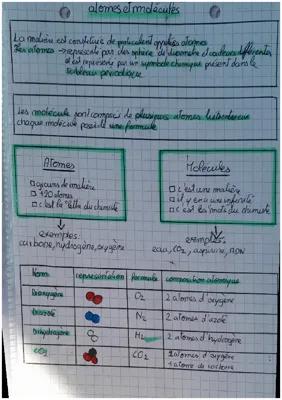 atomes et molécules
La matière est constituée de particules appelées atomes
Les atomes → représenté par des sphère de diamètre et couleurs différentes
et est représenté par un symbole chimique présent dans le
tableau périodique
Les molécule sont composé de plusieurs atomes
chaque molécule possède une formule
Atomes
grains de matière
120 atomes
c'est le "l'ettre du chimiste
exemples:
carbone, hydrogène, oxygène
Molécules
c'est une matière
il y en a une infinité
c'est les mots du chimiste
exemples:
eau, CO2, aspirine, ADN
Nom représentation formule composition atomique
Dioxygène O2 2 atomes d'oxygène
Diazote N2 2 atomes d'azote
Dihydrogène H2 2 atomes d'hydrogène
CO2 CO2 2 atomes d'oxygène
1 atome de carbone